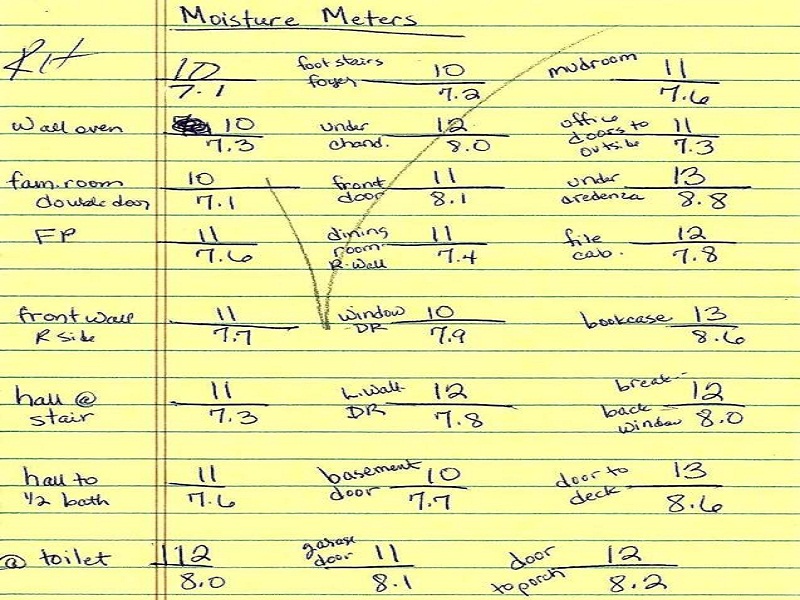 Moisture Meters
RH 10 foot stairs 10 mudroom 11
7.1 foyer 7.2 7.6
Wall oven 10 under 12 office 11
7.3 chand. 8.0 doors to outside 7.3
fam. room 10 front 11 under 13
double door 7.1 door 8.1 credenza 8.8
FP 11 dining 11 file 12
7.6 room R-Wall 7.4 cab. 7.8
front wall 11 window 10 bookcase 13
R side 7.7 DR 7.9 8.6
hall @ 11 L.Wall 12 break- 12
stair 7.3 DR 7.8 back window 8.0
hall to 11 basement 10 door to 13
1/2 bath 7.6 door 7.7 deck 8.6
@ toilet 112 garage door 11 door 12
8.0 8.1 to porch 8.2